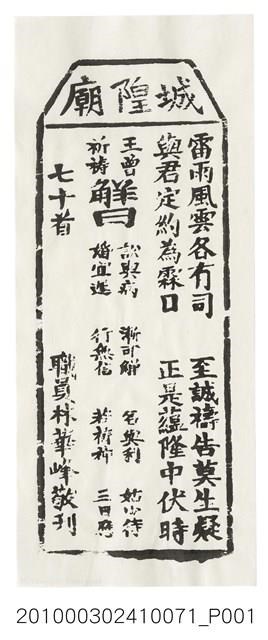 城隍廟
雷雨風雲各有司 至誠禱告莫生疑
與君定約為霖日 正是蘊隆中伏時
王曾祈禱
觧曰
訟與病 漸可觧 名與利 姑少待
婚宜遲 行無信 若禱神 三日應
七十首 職員林華峰敬刊
201000302410071_P001